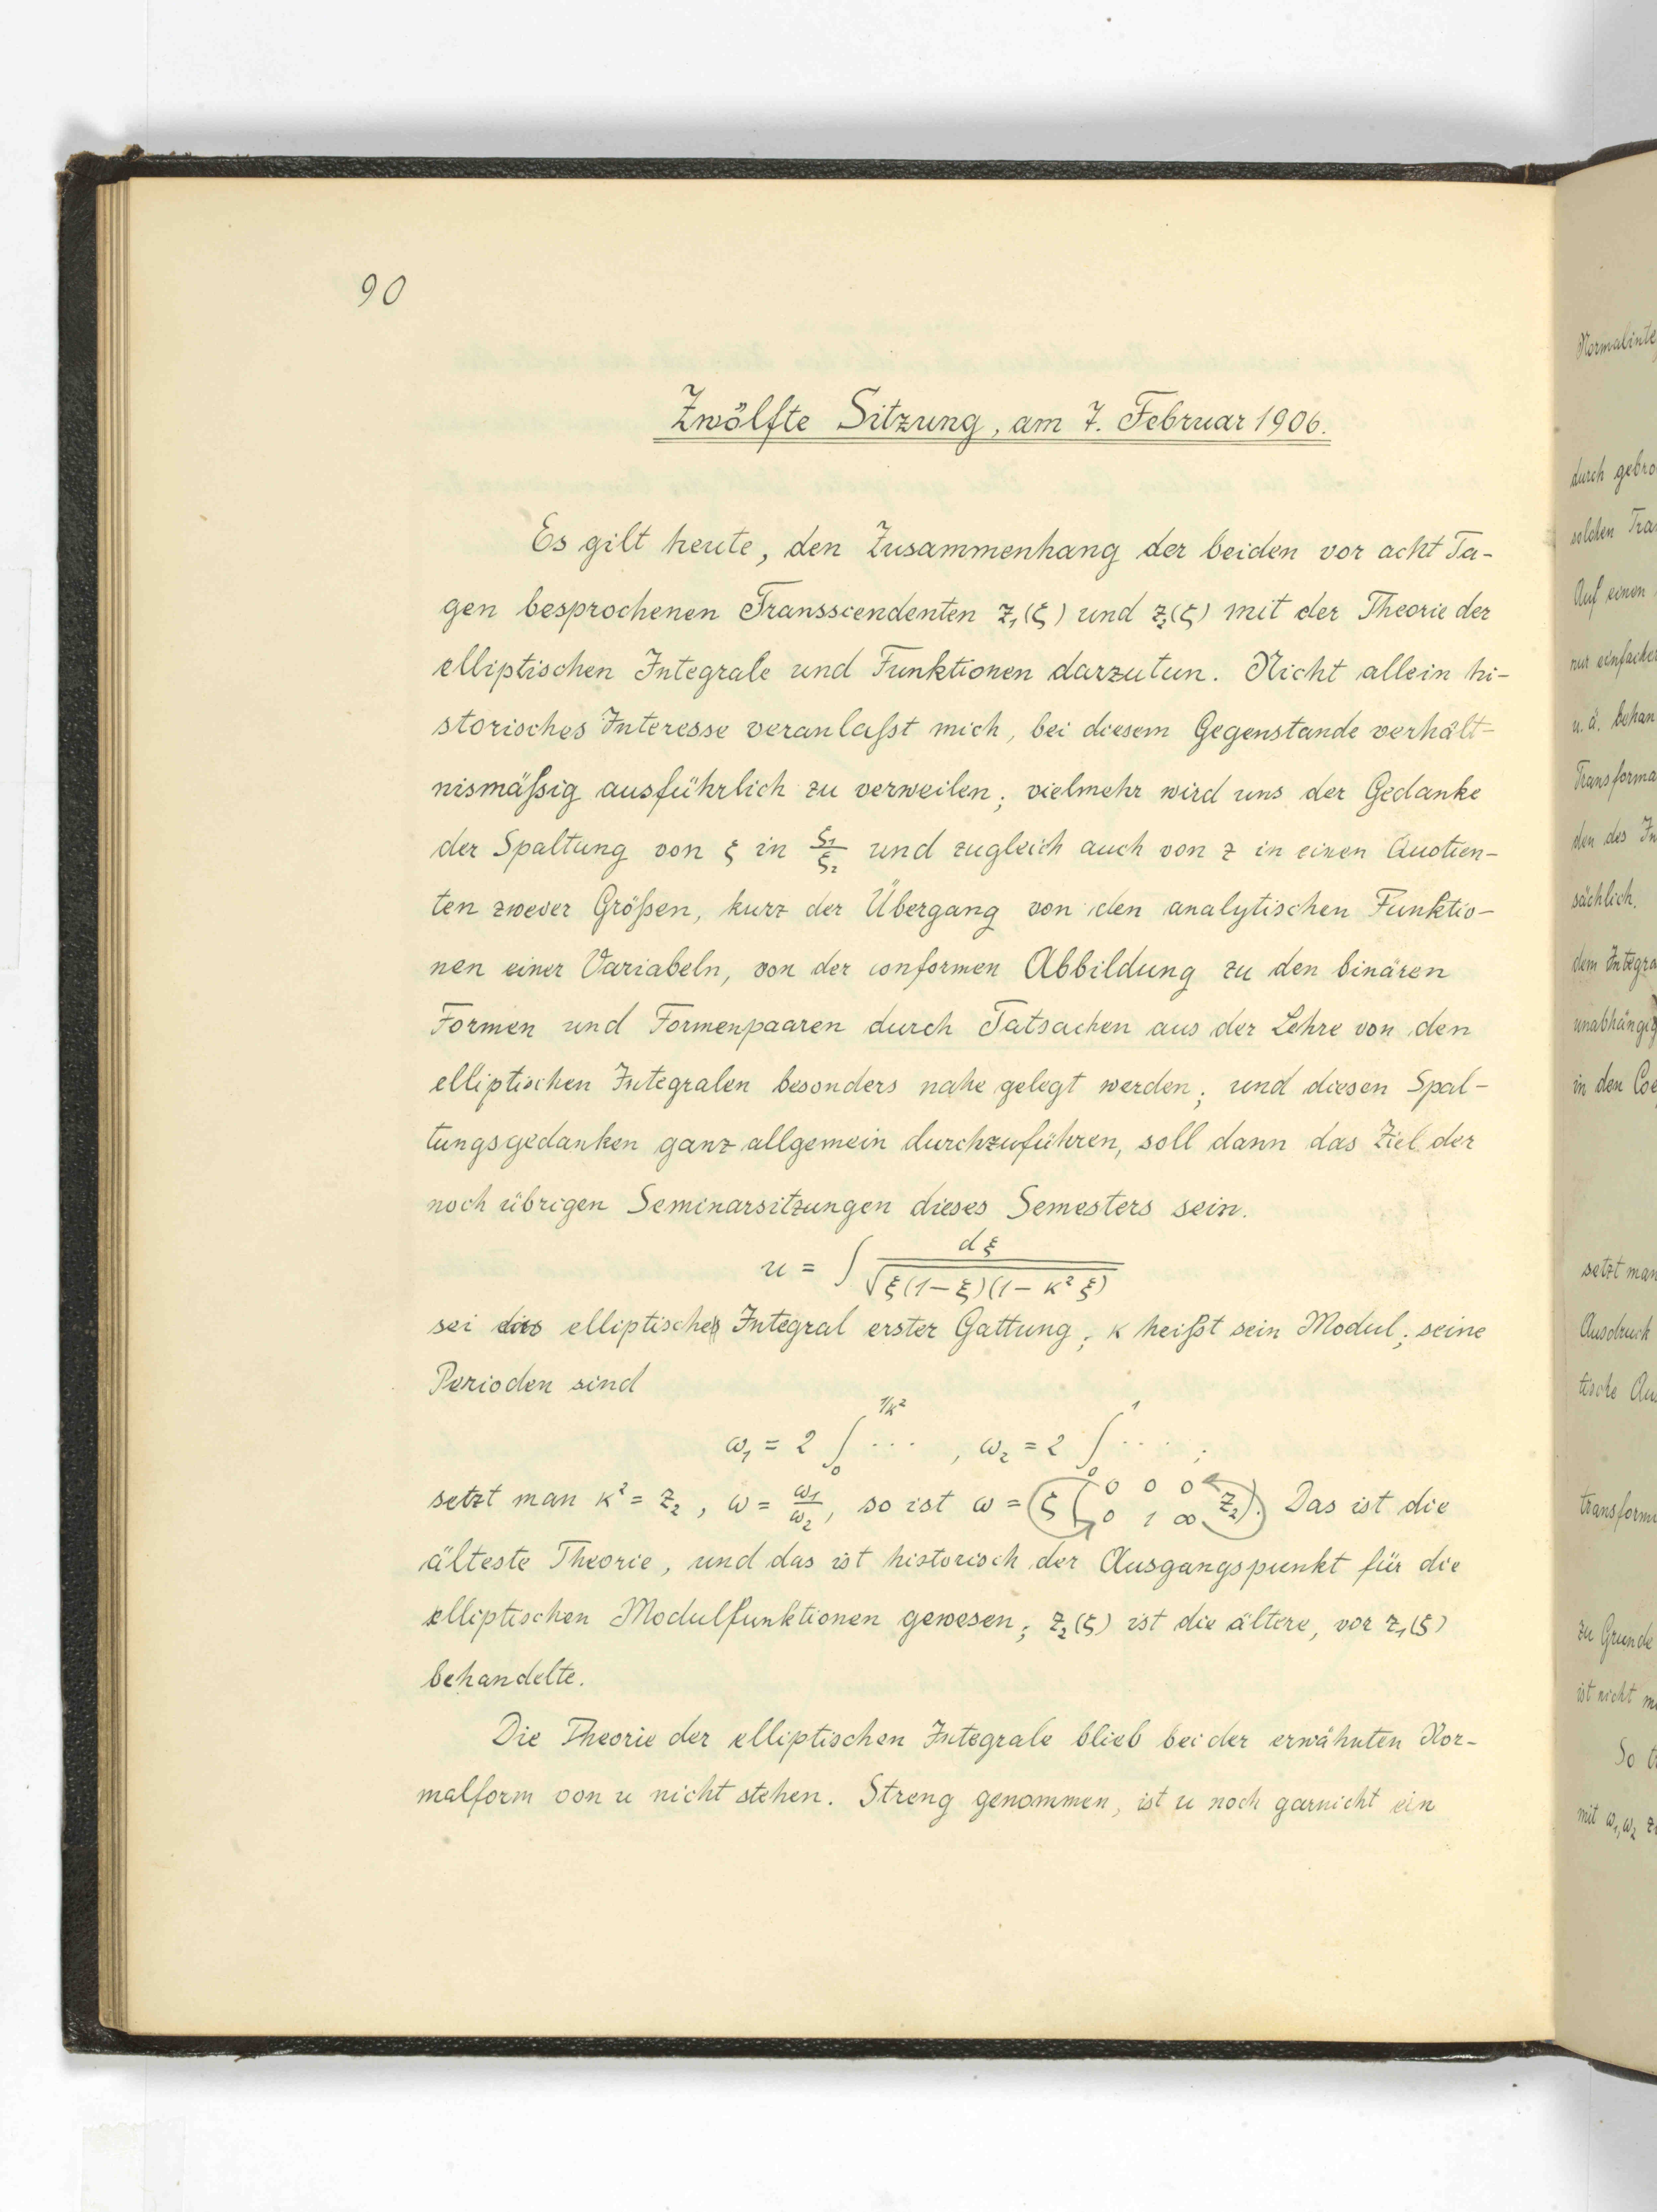 90
Zwölfte Sitzung, am 7. Februar 1906.
Es gilt heute, den Zusammenhang der beiden vor acht Ta-
gen besprochenen Transscendenten z₁(ξ) und z₂(ξ) mit der Theorie der
elliptischen Integrale und Funktionen darzutun. Nicht allein hi-
storisches Interesse veranlaßt mich, bei diesem Gegenstande verhält-
nismäßig ausführlich zu verweilen; vielmehr wird uns der Gedanke
der Spaltung von ξ in ξ₁/ξ₂ und zugleich auch von z in einen Quotien-
ten zweier Größen, kurz der Übergang von den analytischen Funktio-
nen einer Variabeln, von der conformen Abbildung zu den binären
Formen und Formenpaaren durch Tatsachen aus der Lehre von den
elliptischen Integralen besonders nahe gelegt werden; und diesen Spal-
tungsgedanken ganz allgemein durchzuführen, soll dann das Ziel der
noch übrigen Seminarsitzungen dieses Semesters sein.
u = ∫ dξ / √ξ(1−ξ)(1−κ²ξ)
sei elliptisches Integral erster Gattung; κ heißt sein Modul; seine
Perioden sind
ω₁ = 2 ∫₀^{1/κ²} ⋯ , ω₂ = 2 ∫₀^1 ⋯ ;
setzt man κ² = z₂, ω = ω₁/ω₂, so ist ω = ξ(0 0 0 / 0 1 ∞ z₂). Das ist die
älteste Theorie, und das ist historisch der Ausgangspunkt für die
elliptischen Modulfunktionen gewesen; z₂(ξ) ist die ältere, vor z₁(ξ)
behandelte.
Die Theorie der elliptischen Integrale blieb bei der erwähnten Nor-
malform von u nicht stehen. Streng genommen, ist u noch garnicht ein
durch
solchen
Auf einen
u. ä.
den des
sächlich.
dem
in den
setzt man
Ausdruck
tische
zu Grunde
ist nicht
So
mit ω₁, ω₂